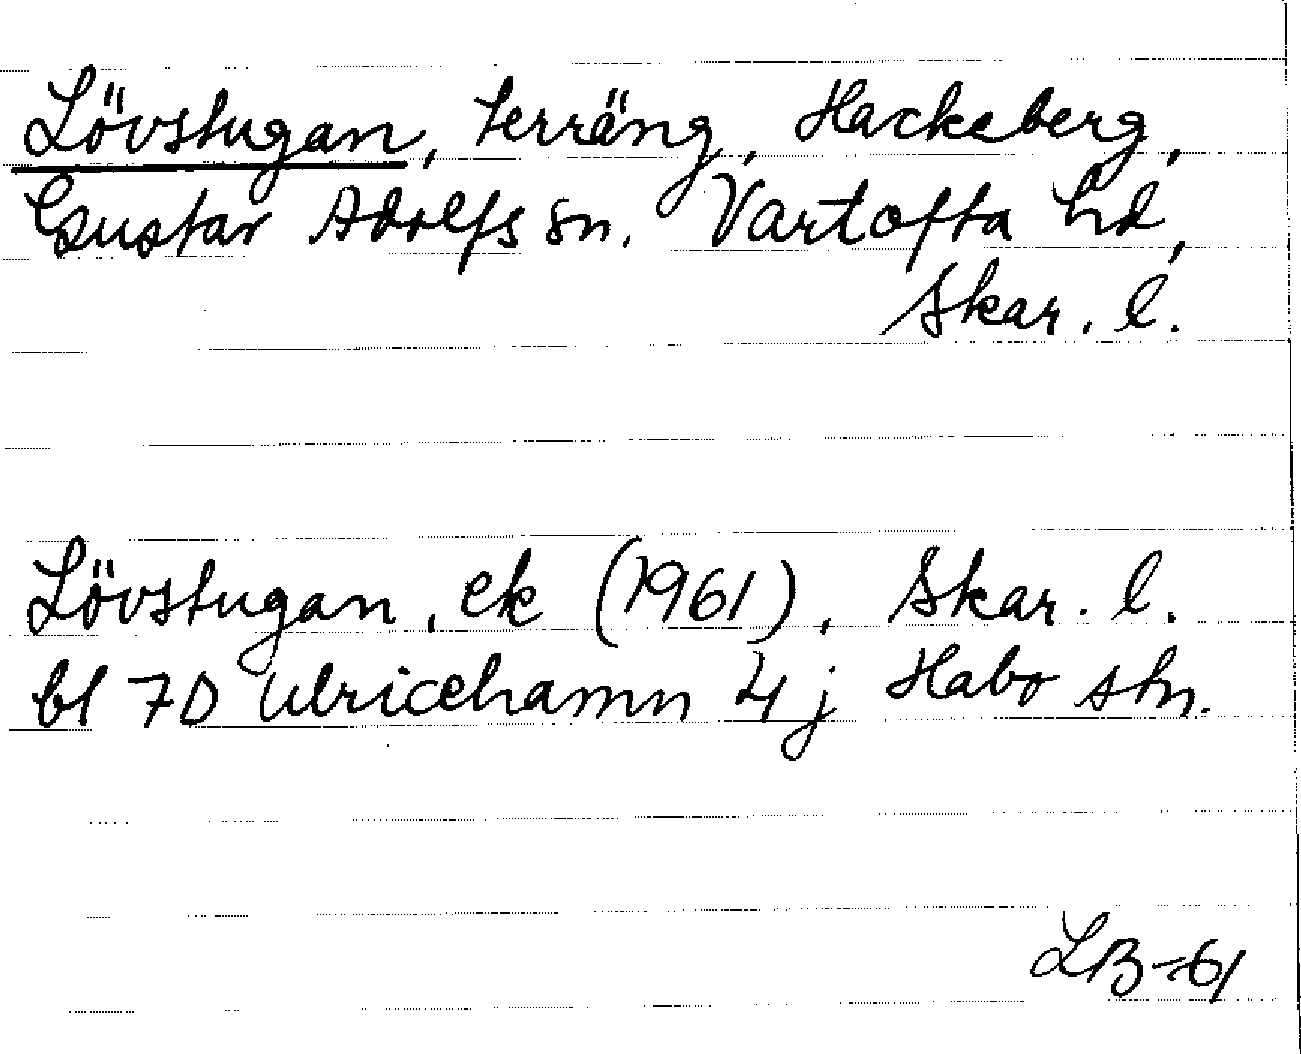 Lövstugan, terräng, Hackeberg,
Gustav Adolfs sn. Vartofta hd,
Skar. l.
Lövstugan, ek (1961), Skar. l.
bl 7D Ulricehamn 4 j Habo stn.
LB-61